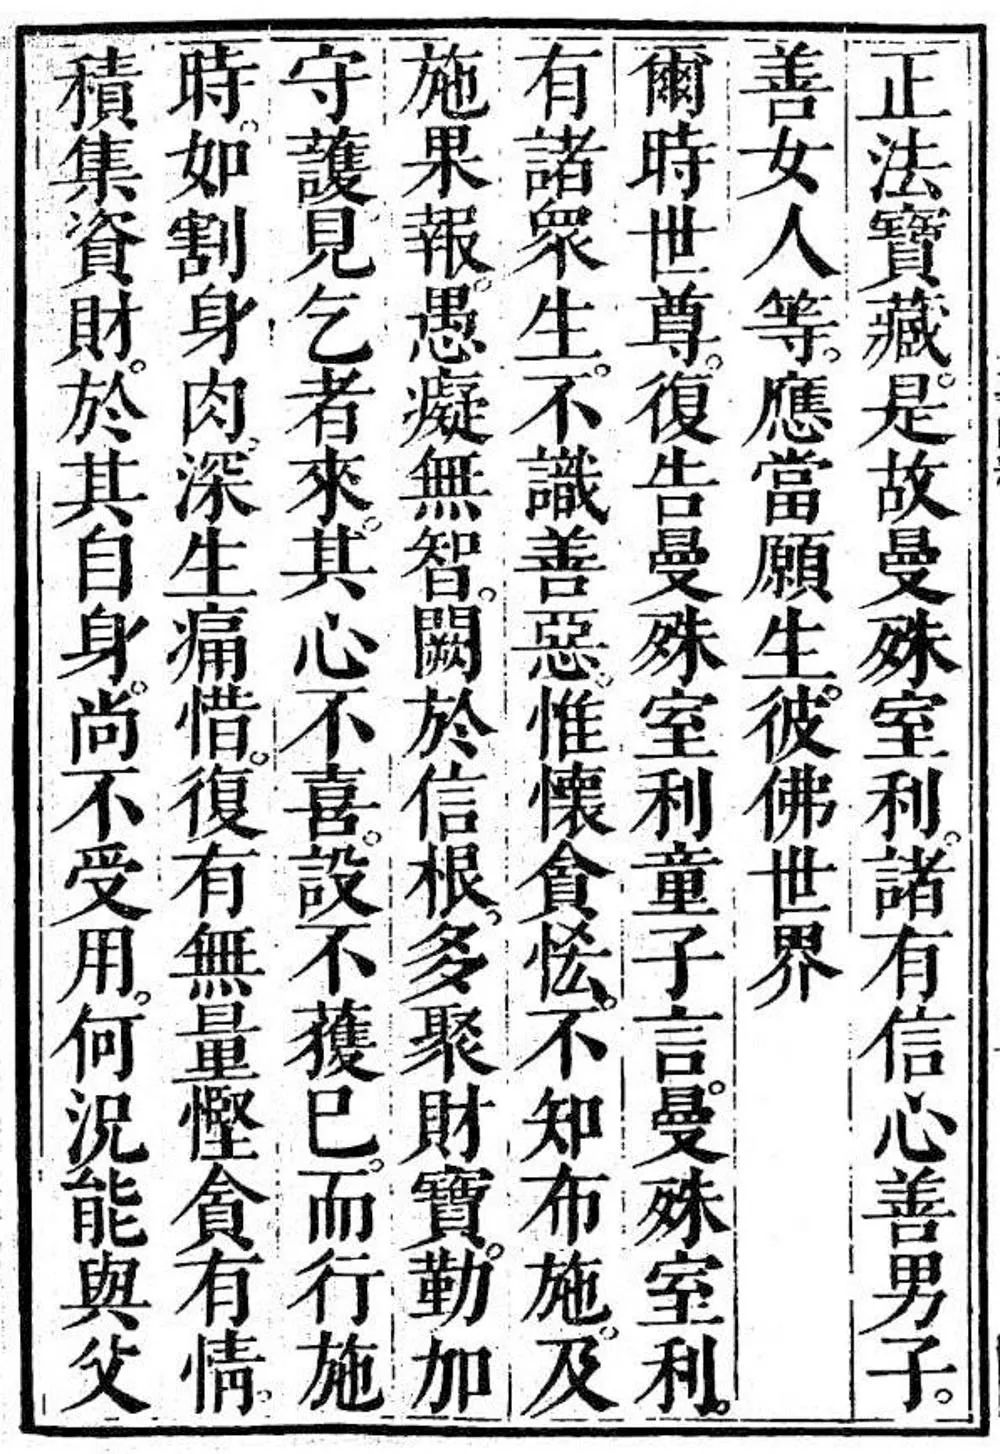 正法寶藏。是故曼殊室利。諸有信心善男子。
善女人等。應當願生。彼佛世界
爾時世尊。復告曼殊室利童子言。曼殊室利。
有諸衆生。不識善惡。惟懷貪恡。不知布施。及
施果報。愚癡無智。闕於信根。多聚財寶。勤加
守護。見乞者來。其心不喜。設不獲已。而行施
時。如割身肉。深生痛惜。復有無量慳貪有情。
積集資財。於其自身。尚不受用。何況能與父